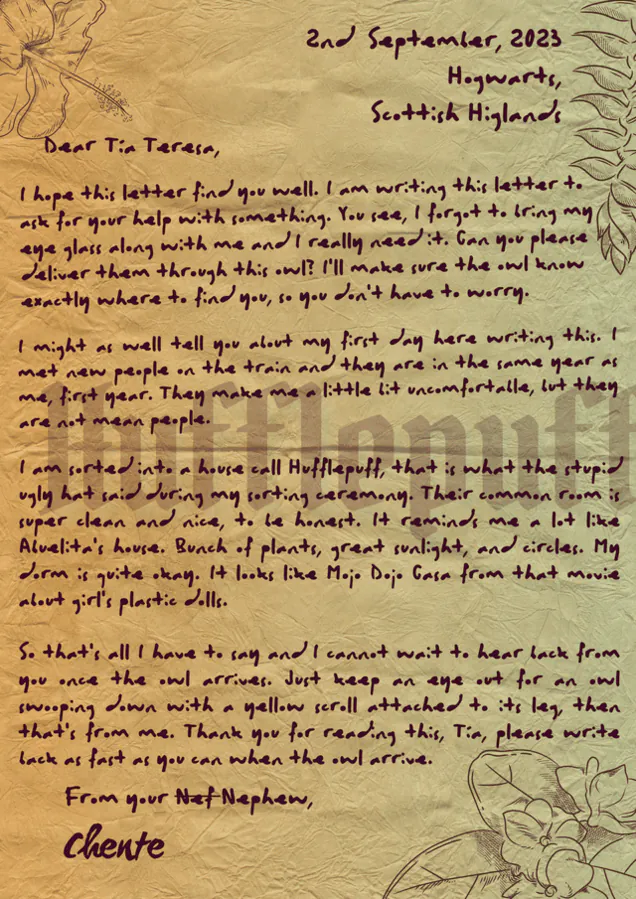 2nd September, 2023
Hogwarts,
Scottish Higlands
Dear Tía Teresa,
I hope this letter find you well. I am writing this letter to
ask for your help with something. You see, I forgot to bring my
eye glass along with me and I really need it. Can you please
deliver them through this owl? I'll make sure the owl know
exactly where to find you, so you don't have to worry.
I might as well tell you about my first day here writing this. I
met new people on the train and they are in the same year as
me, first year. They make me a little bit uncomfortable, but they
are not mean people.
Hufflepuff
I am sorted into a house call Hufflepuff, that is what the stupid
ugly hat said during my sorting ceremony. Their common room is
super clean and nice, to be honest. It reminds me a lot like
Abuelita's house. Bunch of plants, great sunlight, and circles. My
dorm is quite okay. It looks like Mojo Dojo Casa from that movie
about girl's plastic dolls.
So that's all I have to say and I cannot wait to hear back from
you once the owl arrives. Just keep an eye out for an owl
swooping down with a yellow scroll attached to its leg, then
that's from me. Thank you for reading this, Tía, please write
back as fast as you can when the owl arrive.
From your Nef Nephew,
Chente